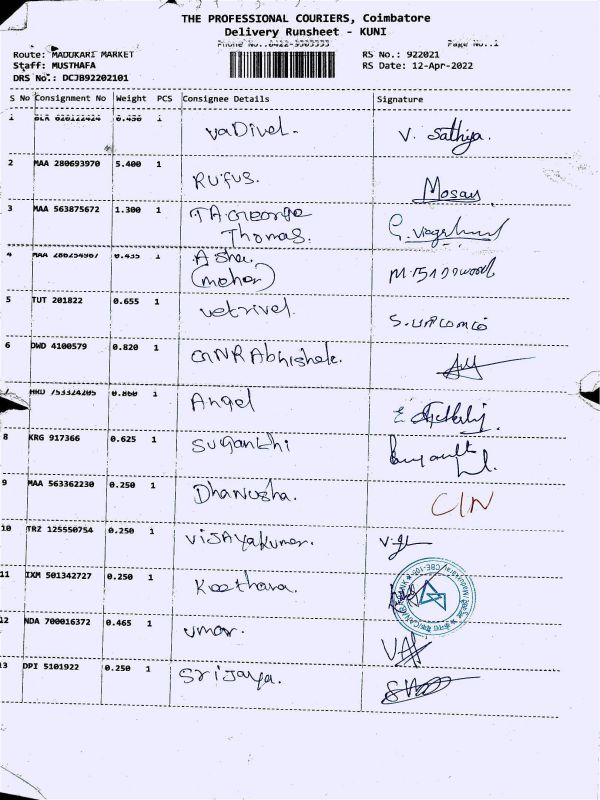 THE PROFESSIONAL COURIERS, Coimbatore
Delivery Runsheet - KUNI
Phone No.:0422-9505555 Page No.:1
Route: MADUKARI MARKET RS No.: 922021
Staff: MUSTHAFA RS Date: 12-Apr-2022
DRS No.: DCJB92202101
S No Consignment No Weight PCS Consignee Details Signature
1 BLR 626122424 0.450 1 vaDivel. V. Sathiya.
2 MAA 280693970 5.400 1 Rufus. Mosay
3 MAA 563875672 1.300 1 T A George
Thomas.
4 MAA 286254967 0.435 1 Asha
(mohan)
5 TUT 201822 0.655 1 vetrivel.
6 DWD 4100579 0.820 1 GNR Abhishek.
7 HRD 753324205 0.860 1 Angel
8 KRG 917366 0.625 1 suganthi
9 MAA 563362230 0.250 1 Dhanusha. CIN
10 TRZ 125550754 0.250 1 VIJAyakumar.
11 IXM 501342727 0.250 1 Keethana.
12 NDA 700016372 0.465 1 umar.
13 DPI 5101922 0.250 1 Srijaya.